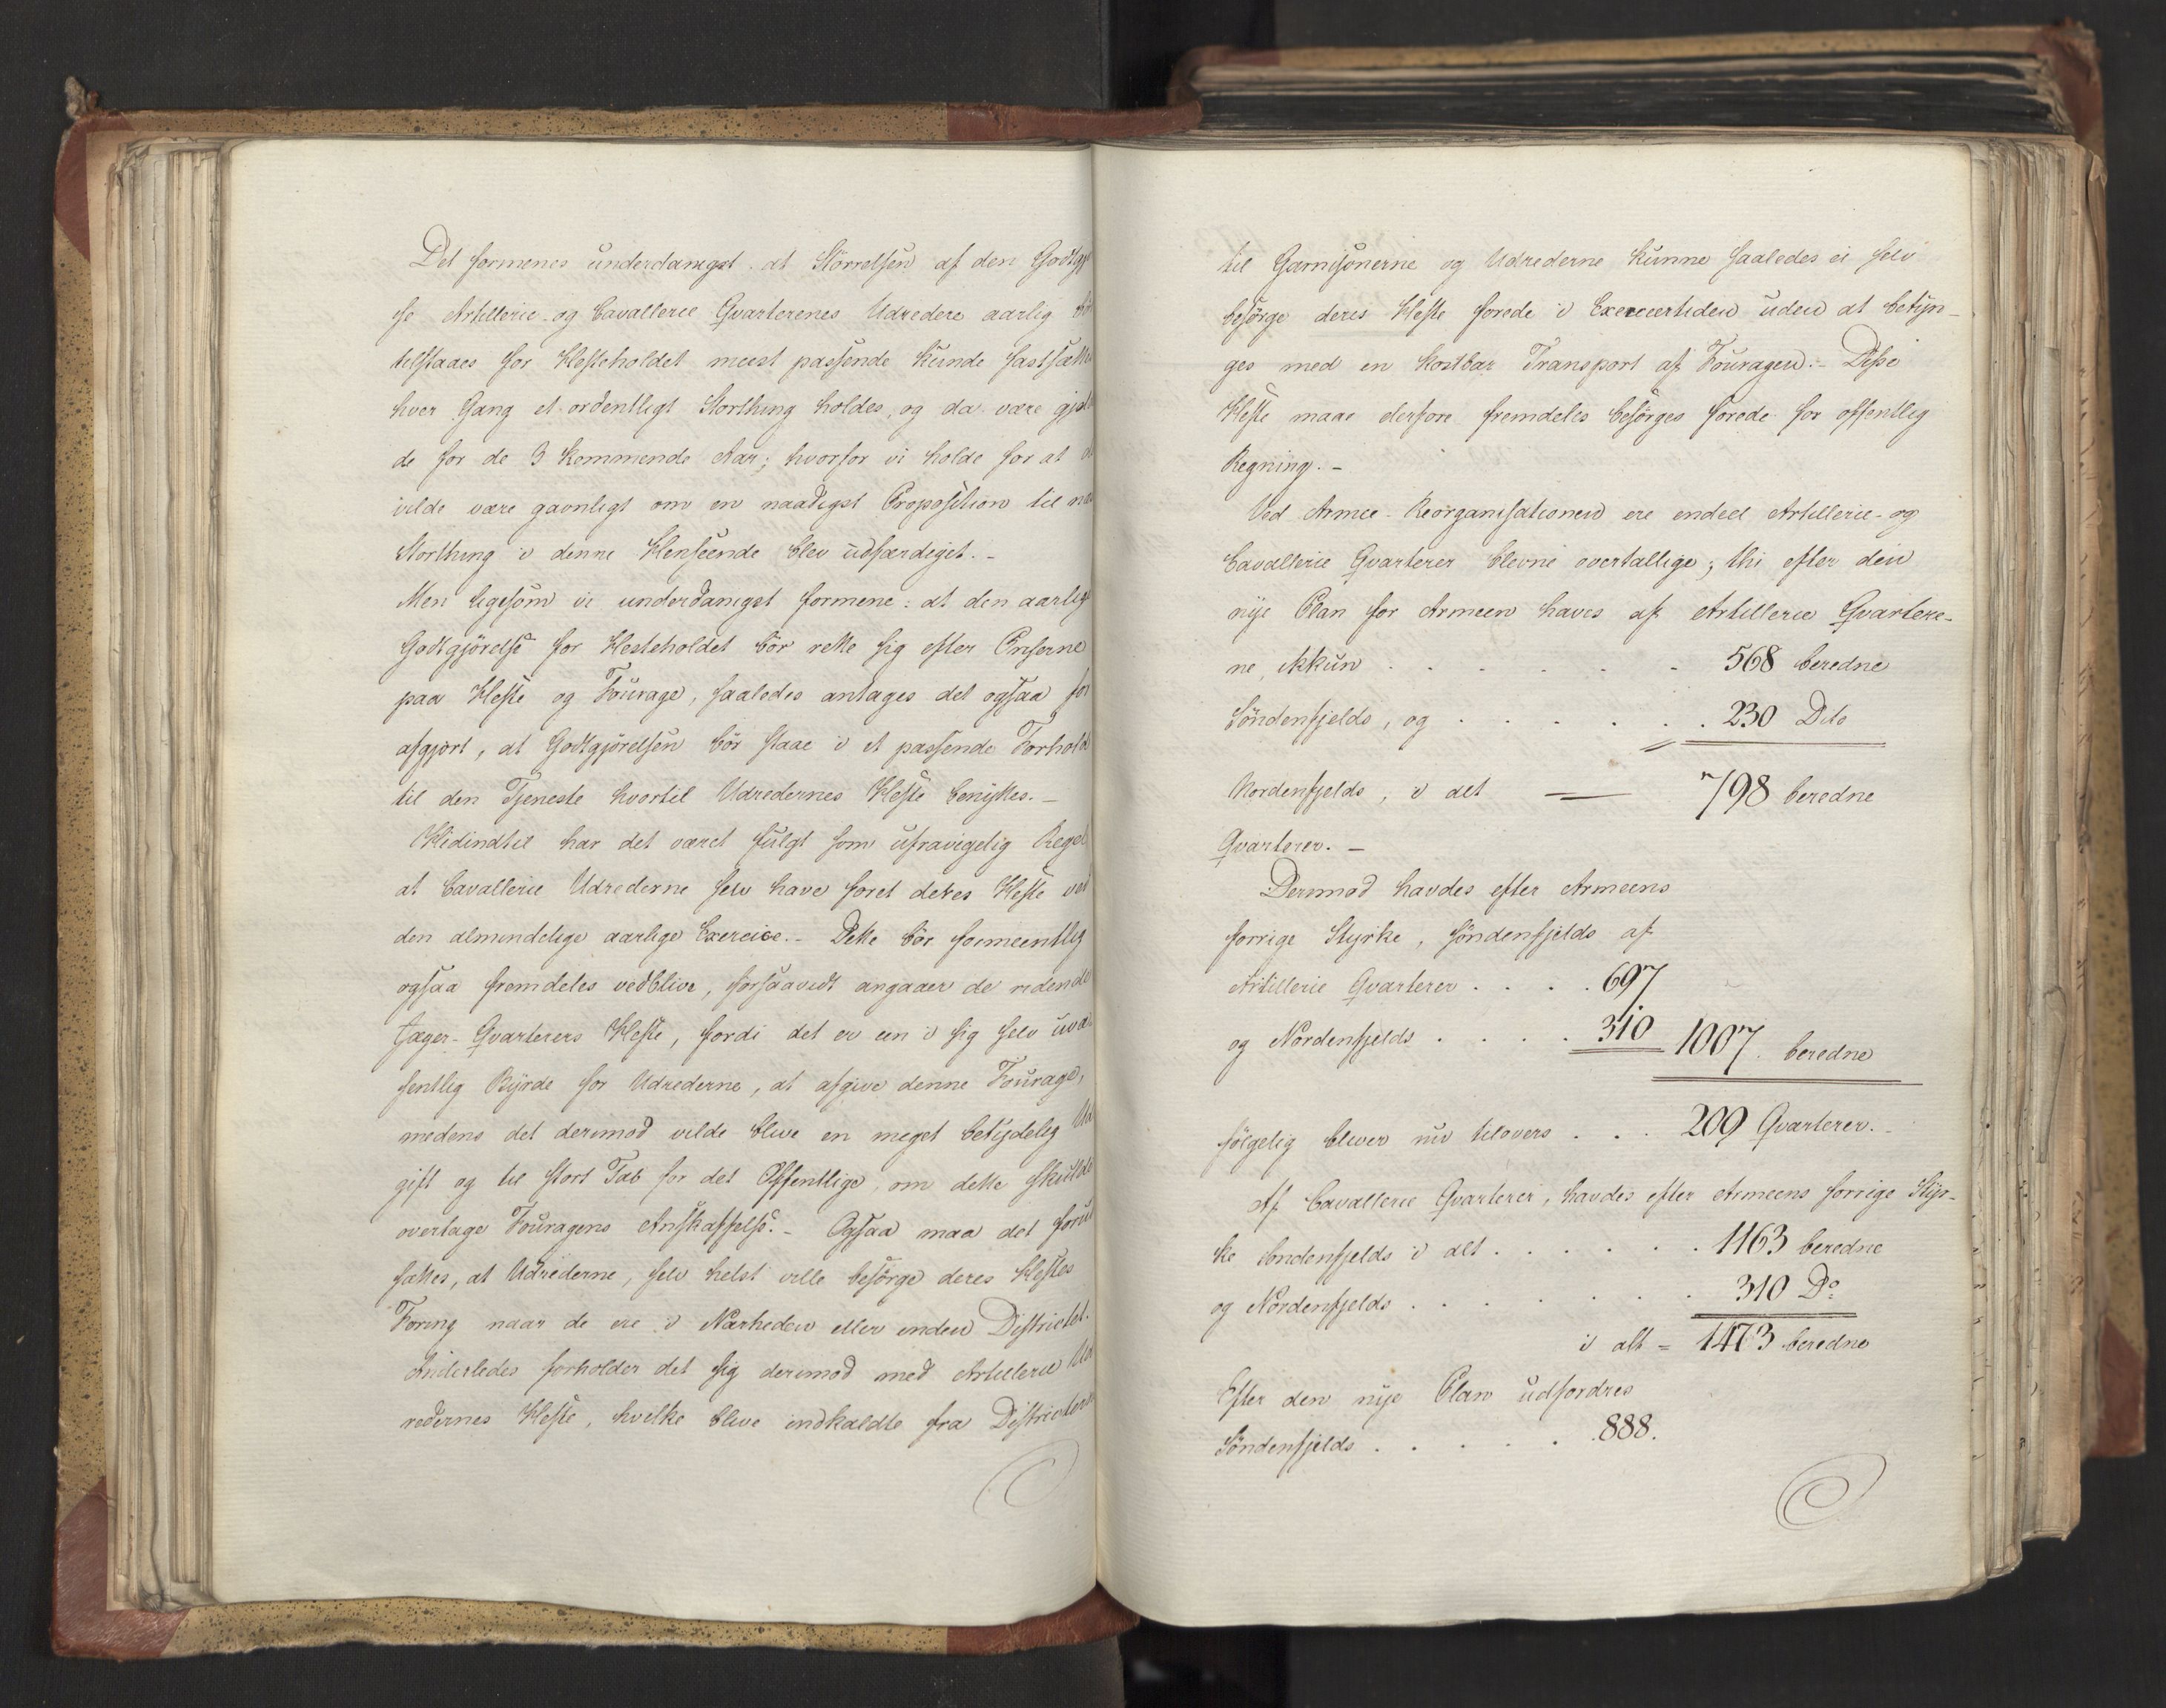 Det formenes underdanigst at Størrelsen af den Godtgj
se Artillerie- og Cavallerie Qvarterenes Udredere aarlig bør
tilstaaes for Hesteholdet meest passende kunde fastsætte
hver Gang et ordentligt Storthing holdes, og da være gjel
de for de 3 kommende Aar; hvorfor vi holde for at
vilde være gavnligt om en naadigst Proposition til næ
Storthing i denne Henseende blev udfærdiget. -
Men ligesom vi underdanigst formene: at den aarlige
Godtgjörelse for Hesteholdet bör rette sig efter Priserne
paa Heste og Fourage, saaledes antages det ogsaa for
afgjort, at Godtgjörelsen bör staae i et passende Forhold
til den Tjeneste hvortil Udredernes Heste benyttes. -
Hidindtil har det været fulgt som ufravigelig Regel
at Cavallerie Udrederne selv have foret deres Heste ved
den almindelige aarlige Exercice. - Dette bör formeentlig
ogsaa fremdeles vedblive, forsaavidt angaaer de ridende
Jæger-Qvarterers Heste, fordi det er een i sig selv uvæ
sentlig Byrde for Udrederne, at afgive denne Fourage,
medens det derimod vilde blive en meget betydelig Ud
gift og til stort Tab for det Offentlige, om dette skulde
overtage Fouragens Anskaffelse. - Ogsaa maa det forud
sættes, at Udrederne, selv helst ville besörge deres Hestes
Foring naar de ere i Nærheden eller inden Districtet.
Anderledes forholder det sig derimod med Artillerie Ud
redernes Heste, hvilke blive indkaldte fra Districterne
til Garnisonerne og Udrederne kunne saaledes ei selv
besörge deres Heste forede i Exerceertiden uden at betyn-
ges med en kostbar Transport af Fouragen. - Disse
Heste maae derfore fremdeles besörges forede for offentlig
Regning. -
Ved Armee-Reorganisationen ere endeel Artillerie- og
Cavallerie Qvarterer blevne overtallige; thi efter den
nye Plan for Armeen haves af Artillerie Qvartere-
ne, ikkun . . . . . 568 beredne
Söndenfjelds, og . . . . . . 230 Dito
Nordenfjelds, i alt — 798 beredne
Qvarterer. -
Derimod havdes efter Armeens
forrige Styrke, söndenfjelds af
Artillerie Qvarterer . . . . 697
og Nordenfjelds . . . . 310 1007. beredne
fölgelig bliver nu tilovers . . . 209 Qvarterer. -
Af Cavallerie Qvarterer, havdes efter Armeens forrige Styr-
ke söndenfjelds i alt . . . . . . 1163 beredne
og Nordenfjelds . . . . . . . 310 Do
i alt = 1473 beredne
Efter den nye Plan udfordres
Söndenfjelds . . . . . . 888.